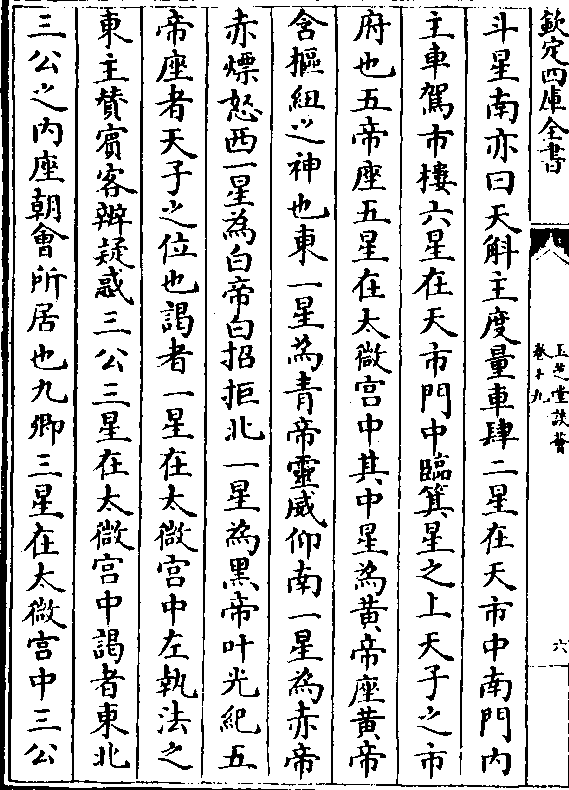 欽定四庫全書
玉芝堂談薈
卷十九
六
斗星南亦曰天斛主度量車肆二星在天市中南門内
主車駕市樓六星在天市門中臨箕星之上天子之市
府也五帝座五星在太微宫中其中星為黄帝座黄帝
含樞紐之神也東一星為青帝靈威仰南一星為赤帝
赤熛怒西一星為白帝白招拒北一星為黑帝叶光紀五
帝座者天子之位也謁者一星在太微宫中左執法之
東主贊賓客辨疑惑三公三星在太微宫中謁者東北
三公之内座朝會所居也九卿三星在太微宫中三公